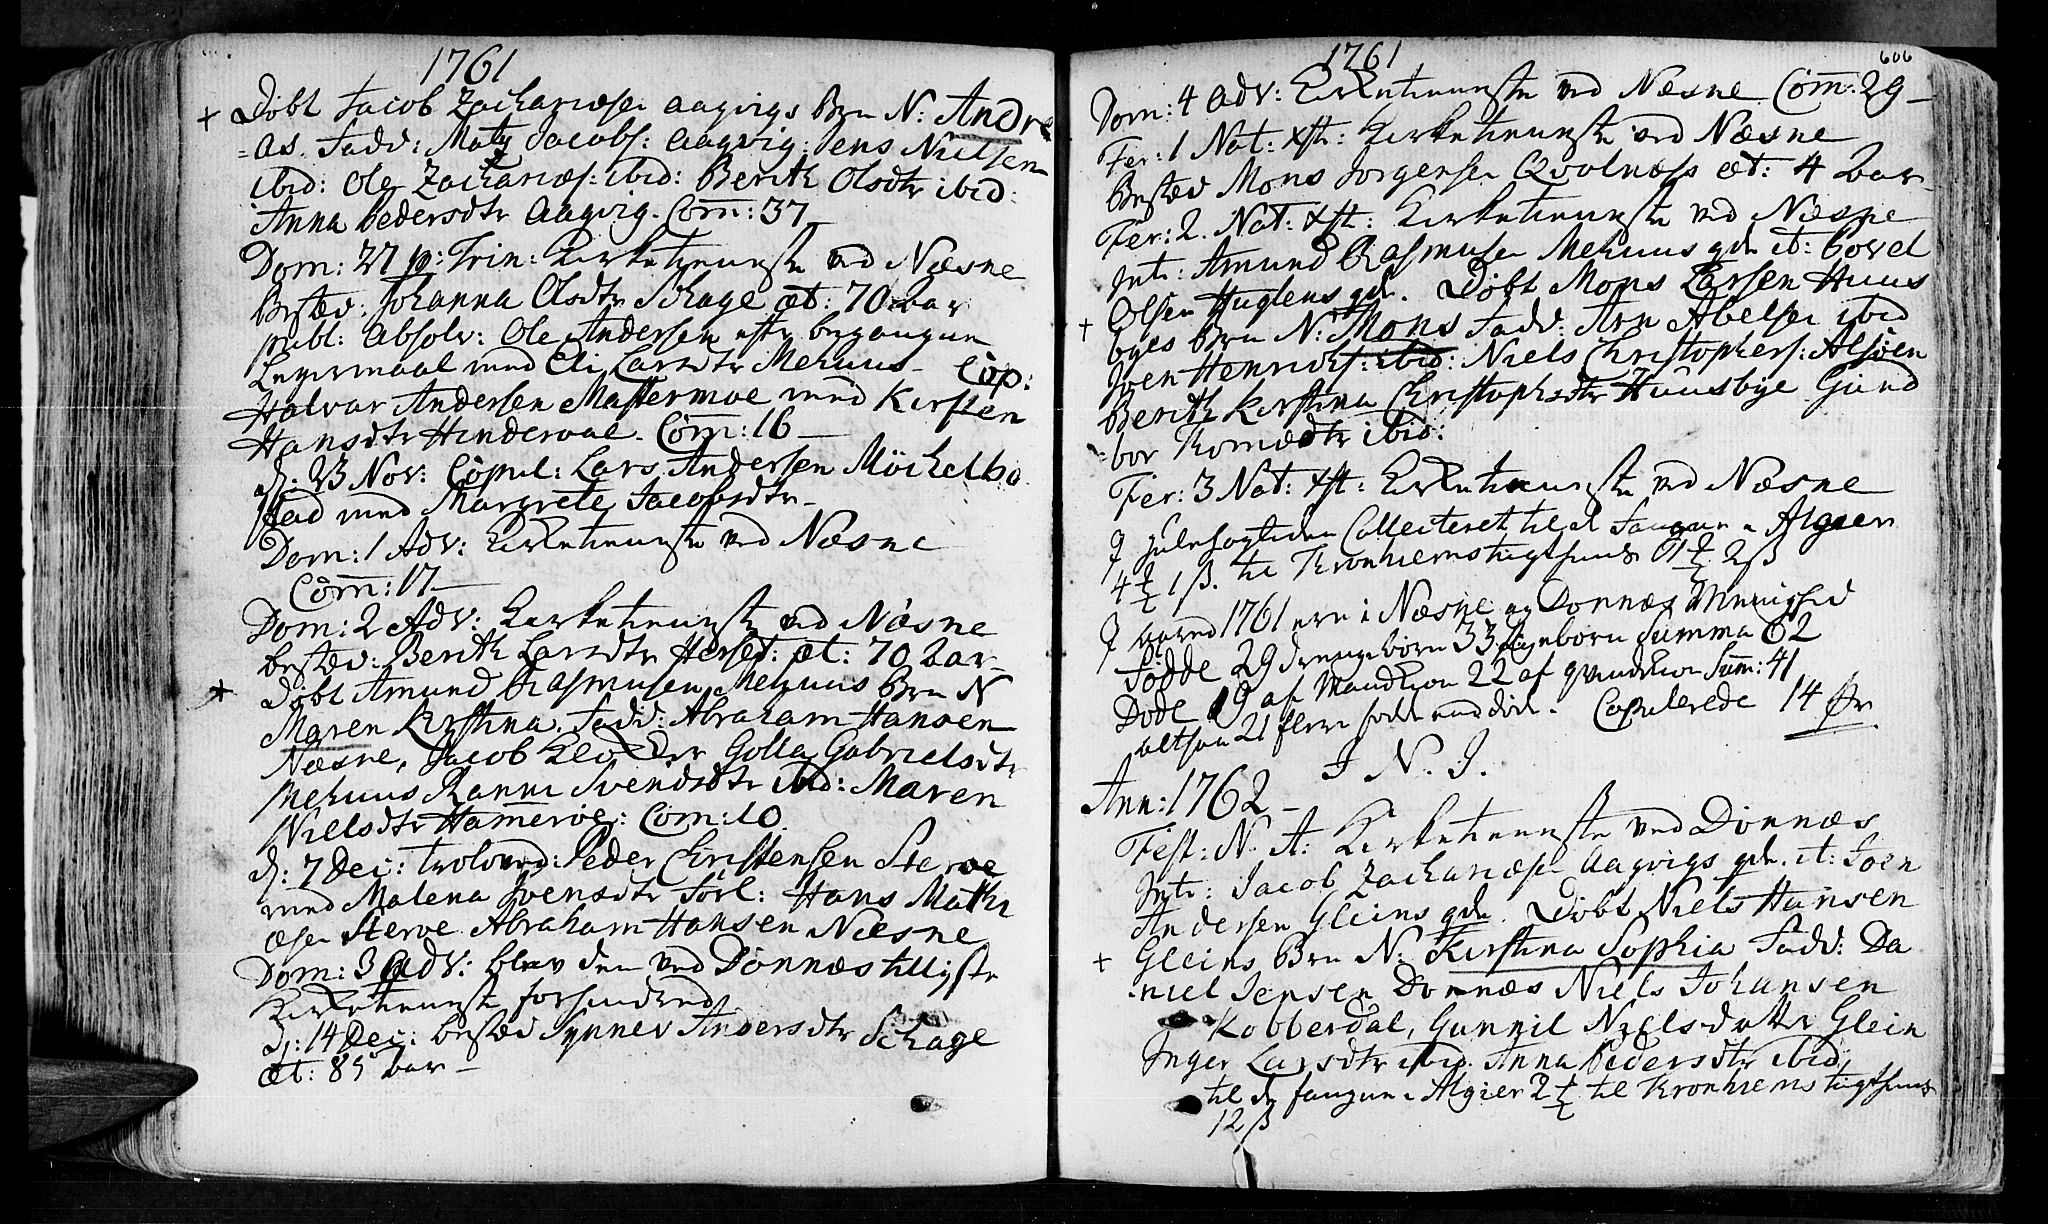 1761
+ Döbt Jacob Zachariæsen Aagvigs Brn N: Andre
=as. Fadd: Mats Jacobs: Aagvig: Jens Nielsen
ibid: Ole Zachariæs: ibid: Berith Olsdtr ibid:
Anna Pedersdtr Aagvig. Com: 37
Dom: 27 p: Trin: Kirketieneste ved Næsne
Bested: Johanna Olsdtr Schage æt: 70 Aar
publ: Absolv: Ole Andersen efter begangen
Leyermaal med Eli Larsdtr Mehuus. Cop:
Halvar Andersen Mastermoe med Kirsten
Hansdtr Hinderval. Com: 16
d: 23 Nov: Copul: Lars Andersen Möchelbo
stad med Margrete Jacobsdtr
Dom: 1 Adv: Kirketieneste ved Næsne
Com: 17
Dom: 2 Adv: Kirketieneste ved Næsne
bested: Berith Larsdtr æt: 70 Aar
+ Döbt Amund Rasmusen Mehuus Brn N
Maren Kirstina. Fadd: Abraham Hansen
Næsne, Jacob Golla Gabrielsdtr
Mehuus Ranni Svendsdtr ibid: Maren
Nielsdtr Hameröe: Com: 10
d: 7 Dec: troloved: Peder Christensen Sterve
med Malena Svensdtr Forl: Hans Mathi
æsen Sterve Abraham Hansen Næsne
Dom: 3 Adv: blev den ved Dönnæs tillyste
Kirketieneste forhindred
d: 14 Dec: bested Synnev Andersdtr Schage
æt: 85 Aar
1761 606
Dom: 4 Adv: Kirketieneste ved Næsne Com: 29
Fer: 1 Nat: Xsti: Kirketieneste ved Næsne
Bested Mons Jorgensen Qvolnæss æt: 4 Aar
Fer: 2. Nat: Xsti: Kirketieneste ved Næsne
Intr: Amund Rasmusen Mehuus qde it: Povel
Olsen Huglens qde. Döbt Mons Larsen Huus
+ byes Brn N: Mons Fadd: Arn Abelsen ibid
Joen Henrichs: ibid: Niels Christophers: Alsöen
Berith Kirstina Christophersdtr Huusbye Gund
=bor Tomædtr ibid:
Fer: 3 Nat: Xsti: Kirketieneste ved Næsne
J Julehögtiden Collecteret til d Fangne i Algier
4 1 ß. til Tronhiems tugthuus 2 ß
J Aared 1761 ere i Næsne og Dönnæs Menighed
Födde 29 drengebörn 33 Summa 62
Döde 19 af Mandkion 22 af qvindkion Summ: 41
altsaa 21 flere födde end döde. Copulerede 14 Par
I N. J.
Ann: 1762
Fest: N: A: Kirketieneste ved Dönnæs
Intr: Jacob Zachariæsen Aagvigs qde. it: Joen
Andersen Gleins qde. Döbt Niels Hansen
+ Gleins Brn N: Kirstina Sophia Fadd: Da
niel Jensen Dönnæs Niels Johansen
Kobberdal, Gunnil Nielsdatter Glein
Inger Larsdtr ibid. Anna Pedersdtr ibid
til de fangne i Algier 2 til Tronhiems tugthuus
12 ß